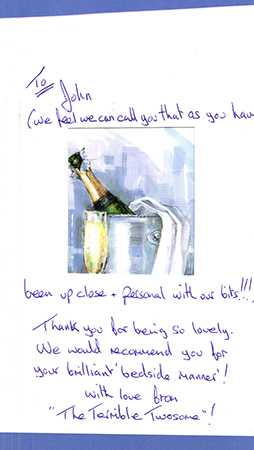 To
John
(we feel we can call you that as you have
been up close + personal with our bits!!!)
Thank you for being so lovely.
We would recommend you for
your brilliant 'bedside manner'!
with love from
"The Terrible Twosome"!